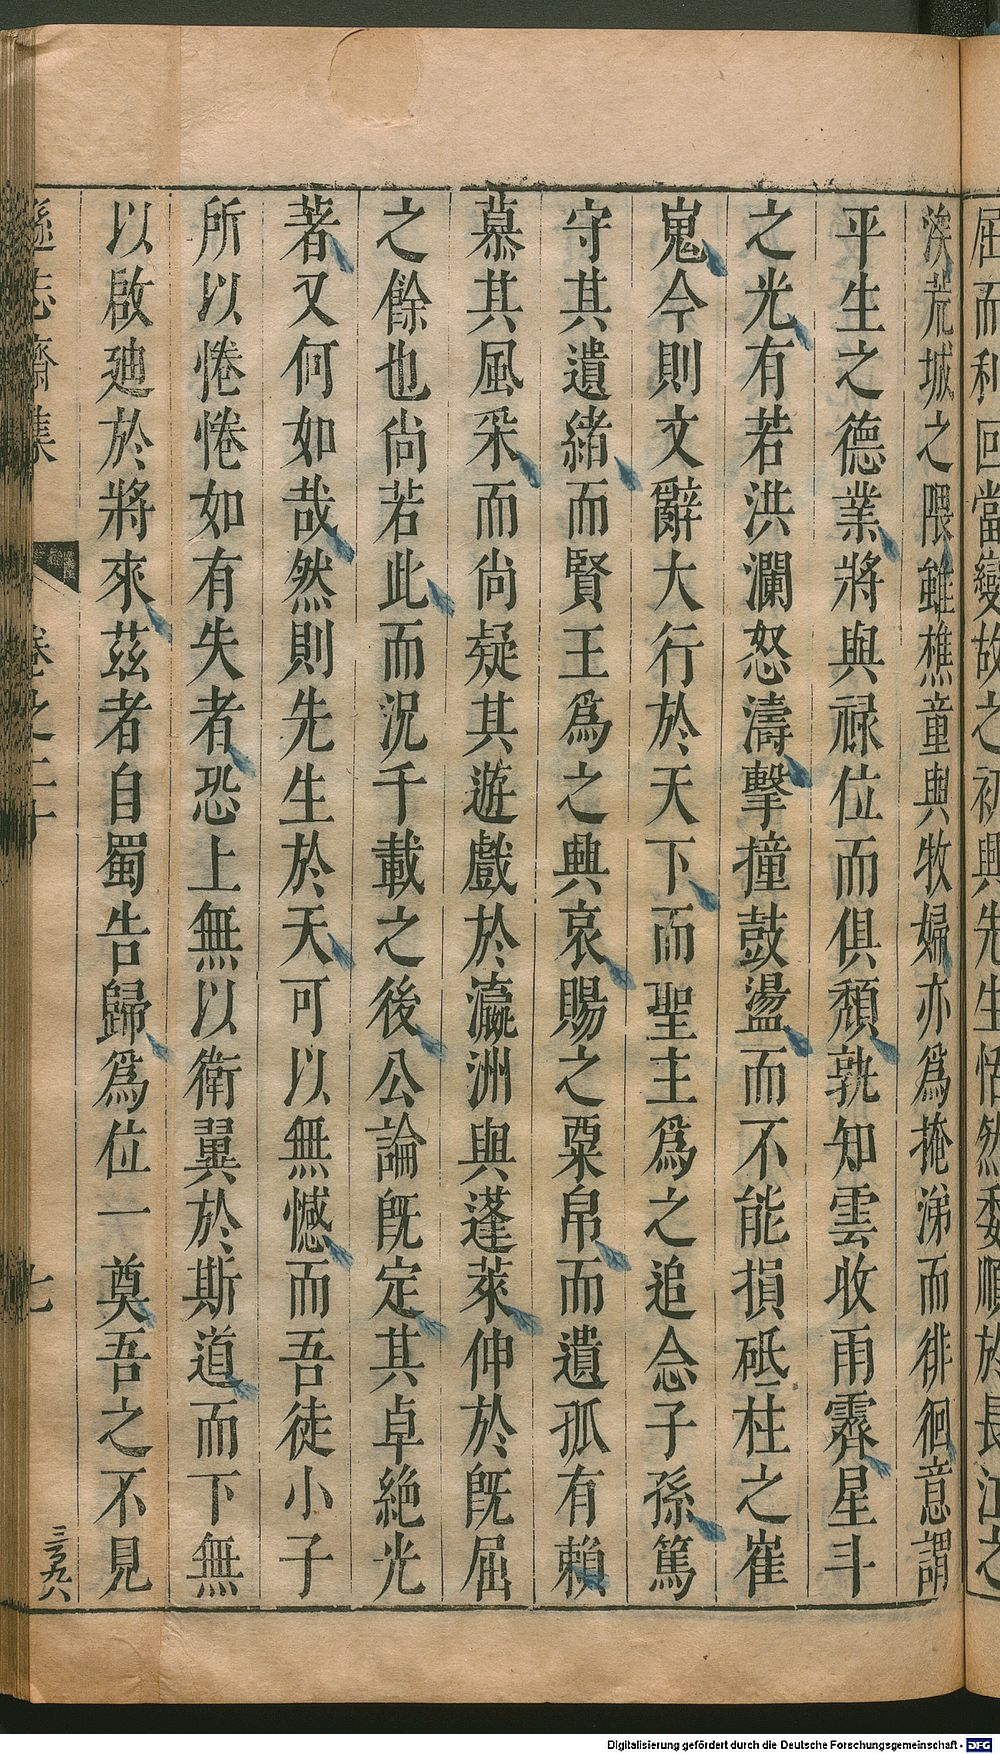 屈而利回當變故之初與先生恬然委順於長江之
涘荒城之隈雖樵童與牧婦亦為掩涕而徘徊意謂
平生之德業將與祿位而俱頹孰知雲收雨霽星斗
之光有若洪瀾怒濤擊撞鼓盪而不能損砥柱之崔
嵬今則文辭大行於天下而聖主爲之追念子孫篤
守其遺緒而賢王爲之興哀賜之粟帛而遺孤有賴
慕其風采而尚疑其遊戲於瀛洲與蓬萊伸於既屈
之餘也尚若此而況千載之後公論既定其卓絶光
著又何如哉然則先生於天可以無憾而吾徒小子
所以惓惓如有失者恐上無以衛翼於斯道而下無
以啟廸於將來茲者自蜀告歸爲位一奠吾之不見
遜志齋集 卷之二十 七
三百九八
Digitalisierung gefördert durch die Deutsche Forschungsgemeinschaft - DFG